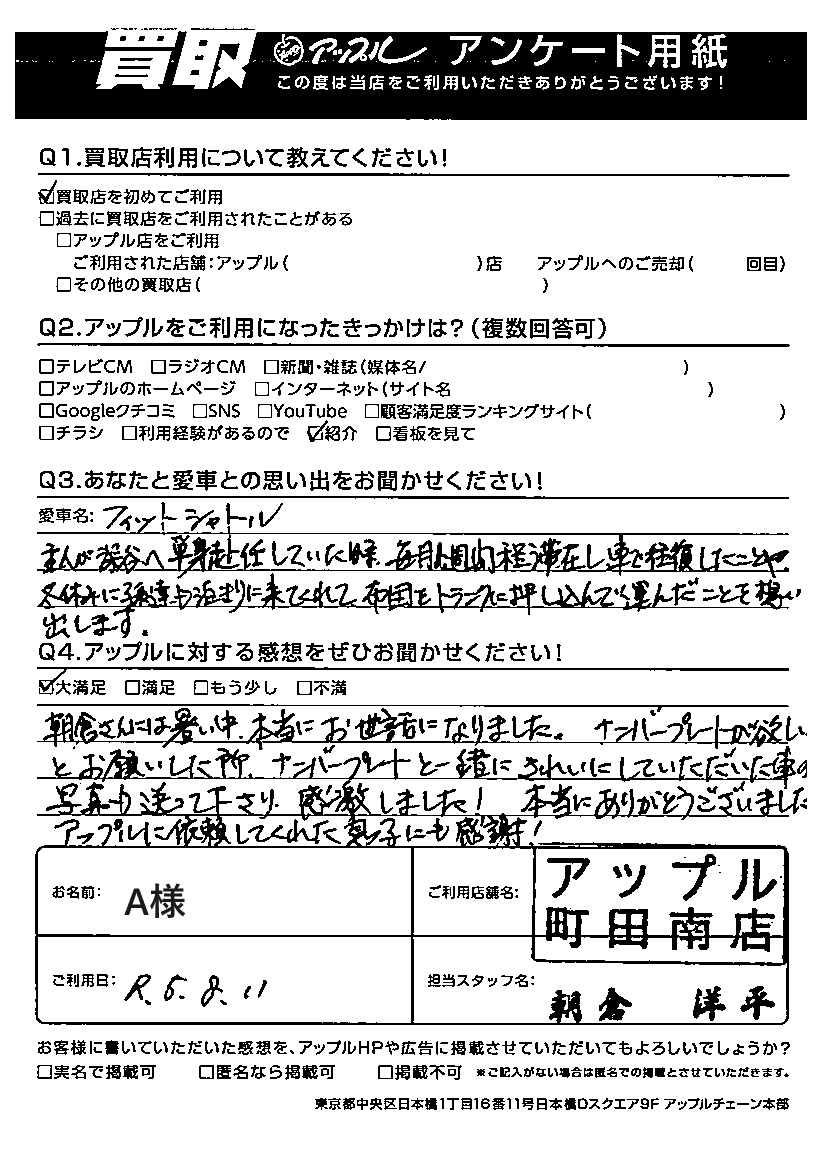 買取 アップル アンケート用紙
この度は当店をご利用いただきありがとうございます!
Q1.買取店利用について教えてください!
☑買取店を初めてご利用
□過去に買取店をご利用されたことがある
□アップル店をご利用
ご利用された店舗:アップル( )店 アップルへのご売却( 回目)
□その他の買取店( )
Q2.アップルをご利用になったきっかけは?(複数回答可)
□テレビCM □ラジオCM □新聞・雑誌(媒体名/ )
□アップルのホームページ □インターネット(サイト名 )
□Googleクチコミ □SNS □YouTube □顧客満足度ランキングサイト( )
□チラシ □利用経験があるので ☑紹介 □看板を見て
Q3.あなたと愛車との思い出をお聞かせください!
愛車名: フィットシャトル
主人が渋谷へ単身赴任していた時、毎月1週間程滞在し車で往復したことや、
冬休みに孫達が泊まりに来てくれて布団をトランクに押し込んで運んだことを思い
出します。
Q4.アップルに対する感想をぜひお聞かせください!
☑大満足 □満足 □もう少し □不満
朝倉さんには暑い中、本当にお世話になりました。 ナンバープレートが欲しい
とお願いした所、ナンバープレートと一緒にきれいにしていただいた車の
写真も送って下さり、感激しました! 本当にありがとうございました
アップルに依頼してくれた真っ子にも感謝!
お名前: A様
ご利用店舗名: アップル
町田南店
ご利用日: R.5.8.11
担当スタッフ名: 朝倉 洋平
お客様に書いていただいた感想を、アップルHPや広告に掲載させていただいてもよろしいでしょうか?
□実名で掲載可 □匿名なら掲載可 □掲載不可 ※ご記入がない場合は匿名での掲載とさせていただきます。
東京都中央区日本橋1丁目16番11号日本橋Dスクエア9F アップルチェーン本部